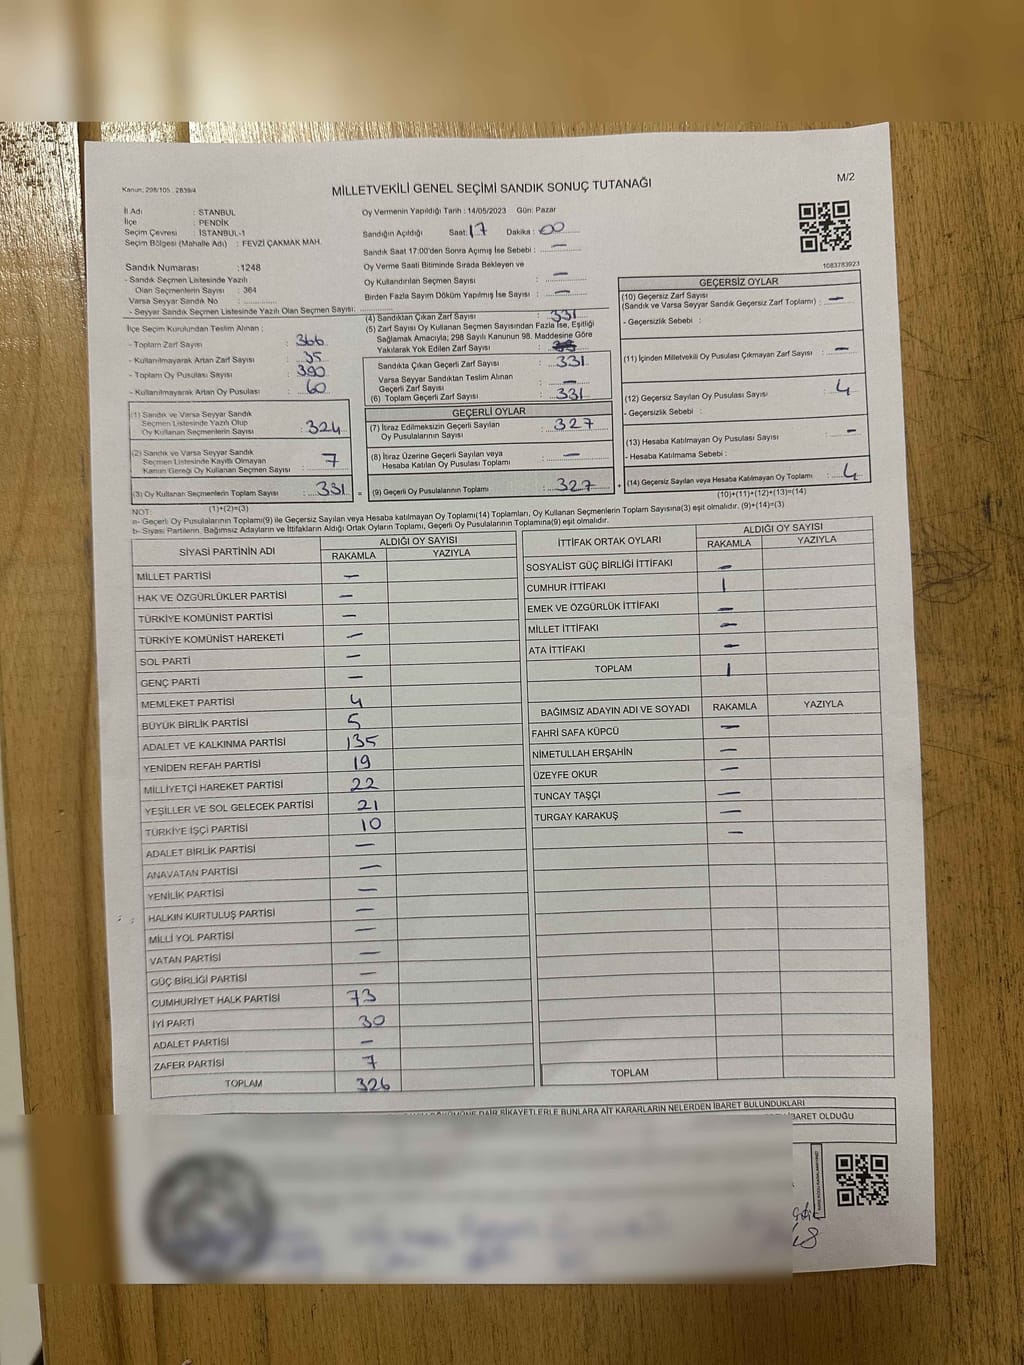 Kanun: 298/105 , 2839/4
MİLLETVEKİLİ GENEL SEÇİMİ SANDIK SONUÇ TUTANAĞI
M/2
İl Adı : STANBUL
İlçe : PENDİK
Seçim Çevresi : İSTANBUL-1
Seçim Bölgesi (Mahalle Adı) : FEVZİ ÇAKMAK MAH.
Oy Vermenin Yapıldığı Tarih : 14/05/2023 Gün: Pazar
Sandığın Açıldığı Saat: 17 Dakika : 00
Sandık Saat 17:00'den Sonra Açımış İse Sebebi : —
Oy Verme Saati Bitiminde Sırada Bekleyen ve
Oy Kullandırılan Seçmen Sayısı : —
Birden Fazla Sayım Döküm Yapılmış İse Sayısı : —
1083783923
Sandık Numarası : 1248
- Sandık Seçmen Listesinde Yazılı
Olan Seçmenlerin Sayısı : 364
Varsa Seyyar Sandık No :
- Seyyar Sandık Seçmen Listesinde Yazılı Olan Seçmen Sayısı:
İlçe Seçim Kurulundan Teslim Alınan :
- Toplam Zarf Sayısı : 366
- Kullanılmayarak Artan Zarf Sayısı : 35
- Toplam Oy Pusulası Sayısı : 390
- Kullanılmayarak Artan Oy Pusulası : 60
(1) Sandık ve Varsa Seyyar Sandık
Seçmen Listesinde Yazılı Olup
Oy Kullanan Seçmenlerin Sayısı : 324
(2) Sandık ve Varsa Seyyar Sandık
Seçmen Listesinde Kayıtlı Olmayan
Kanun Gereği Oy Kullanan Seçmen Sayısı : 7
(3) Oy Kullanan Seçmenlerin Toplam Sayısı : 331 =
(1)+(2)=(3)
(4) Sandıktan Çıkan Zarf Sayısı : 331
(5) Zarf Sayısı Oy Kullanan Seçmen Sayısından Fazla İse, Eşitliği
Sağlamak Amacıyla; 298 Sayılı Kanunun 98. Maddesine Göre
Yakılarak Yok Edilen Zarf Sayısı :
Sandıkta Çıkan Geçerli Zarf Sayısı : 331
Varsa Seyyar Sandıktan Teslim Alınan
Geçerli Zarf Sayısı : —
(6) Toplam Geçerli Zarf Sayısı : 331
GEÇERLİ OYLAR
(7) İtiraz Edilmeksizin Geçerli Sayılan
Oy Pusulalarının Sayısı : 327
(8) İtiraz Üzerine Geçerli Sayılan veya
Hesaba Katılan Oy Pusulası Toplamı : —
(9) Geçerli Oy Pusulalarının Toplamı : 327 +
GEÇERSİZ OYLAR
(10) Geçersiz Zarf Sayısı
(Sandık ve Varsa Seyyar Sandık Geçersiz Zarf Toplamı) : —
- Geçersizlik Sebebi :
(11) İçinden Milletvekili Oy Pusulası Çıkmayan Zarf Sayısı : —
(12) Geçersiz Sayılan Oy Pusulası Sayısı : 4
- Geçersizlik Sebebi :
(13) Hesaba Katılmayan Oy Pusulası Sayısı : —
- Hesaba Katılmama Sebebi :
(14) Geçersiz Sayılan veya Hesaba Katılmayan Oy Toplamı : 4
(10)+(11)+(12)+(13)=(14)
NOT:
a- Geçerli Oy Pusulalarının Toplamı(9) ile Geçersiz Sayılan veya Hesaba katılmayan Oy Toplamı(14) Toplamları, Oy Kullanan Seçmenlerin Toplam Sayısına(3) eşit olmalıdır. (9)+(14)=(3)
b- Siyasi Partilerin, Bağımsız Adayların ve İttifakların Aldığı Ortak Oyların Toplamı, Geçerli Oy Pusulalarının Toplamına(9) eşit olmalıdır.
SİYASİ PARTİNİN ADI ALDIĞI OY SAYISI
RAKAMLA YAZIYLA
MİLLET PARTİSİ —
HAK VE ÖZGÜRLÜKLER PARTİSİ —
TÜRKİYE KOMÜNİST PARTİSİ —
TÜRKİYE KOMÜNİST HAREKETİ —
SOL PARTİ —
GENÇ PARTİ —
MEMLEKET PARTİSİ 4
BÜYÜK BİRLİK PARTİSİ 5
ADALET VE KALKINMA PARTİSİ 135
YENİDEN REFAH PARTİSİ 19
MİLLİYETÇİ HAREKET PARTİSİ 22
YEŞİLLER VE SOL GELECEK PARTİSİ 21
TÜRKİYE İŞÇİ PARTİSİ 10
ADALET BİRLİK PARTİSİ —
ANAVATAN PARTİSİ —
YENİLİK PARTİSİ —
HALKIN KURTULUŞ PARTİSİ —
MİLLİ YOL PARTİSİ —
VATAN PARTİSİ —
GÜÇ BİRLİĞİ PARTİSİ —
CUMHURİYET HALK PARTİSİ 73
İYİ PARTİ 30
ADALET PARTİSİ —
ZAFER PARTİSİ 7
TOPLAM 326
İTTİFAK ORTAK OYLARI ALDIĞI OY SAYISI
RAKAMLA YAZIYLA
SOSYALİST GÜÇ BİRLİĞİ İTTİFAKI —
CUMHUR İTTİFAKI 1
EMEK VE ÖZGÜRLÜK İTTİFAKI —
MİLLET İTTİFAKI —
ATA İTTİFAKI —
TOPLAM 1
BAĞIMSIZ ADAYIN ADI VE SOYADI RAKAMLA YAZIYLA
FAHRİ SAFA KÜPCÜ —
NİMETULLAH ERŞAHİN —
ÜZEYFE OKUR —
TUNCAY TAŞÇI —
TURGAY KARAKUŞ —
—
TOPLAM
DAİR ŞİKAYETLERLE BUNLARA AİT KARARLARIN NELERDEN İBARET BULUNDUKLARI
İBARET OLDUĞU